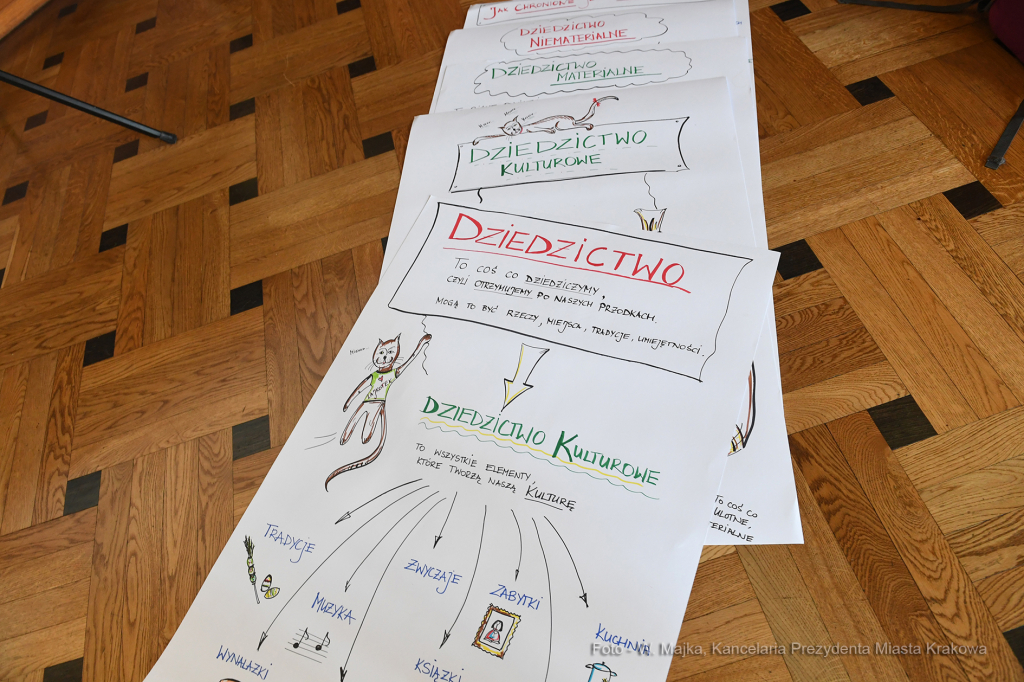 JAK CHRONIONE
DZIEDZICTWO
NIEMATERIALNE
DZIEDZICTWO
MATERIALNE
DZIEDZICTWO
KULTUROWE
DZIEDZICTWO
TO COŚ CO DZIEDZICZYMY,
CZYLI OTRZYMUJEMY PO NASZYCH PRZODKACH.
MOGĄ TO BYĆ RZECZY, MIEJSCA, TRADYCJE, UMIEJĘTNOŚCI.
DZIEDZICTWO KULTUROWE
TO WSZYSTKIE ELEMENTY,
KTÓRE TWORZĄ NASZĄ KULTURĘ
TRADYCJE
ZWYCZAJE
ZABYTKI
MUZYKA
KUCHNIA
WYNALAZKI
KSIĄŻKI
TO COŚ CO
ULOTNE,
TERIALNE
Foto - W. Majka, Kancelaria Prezydenta Miasta Krakowa